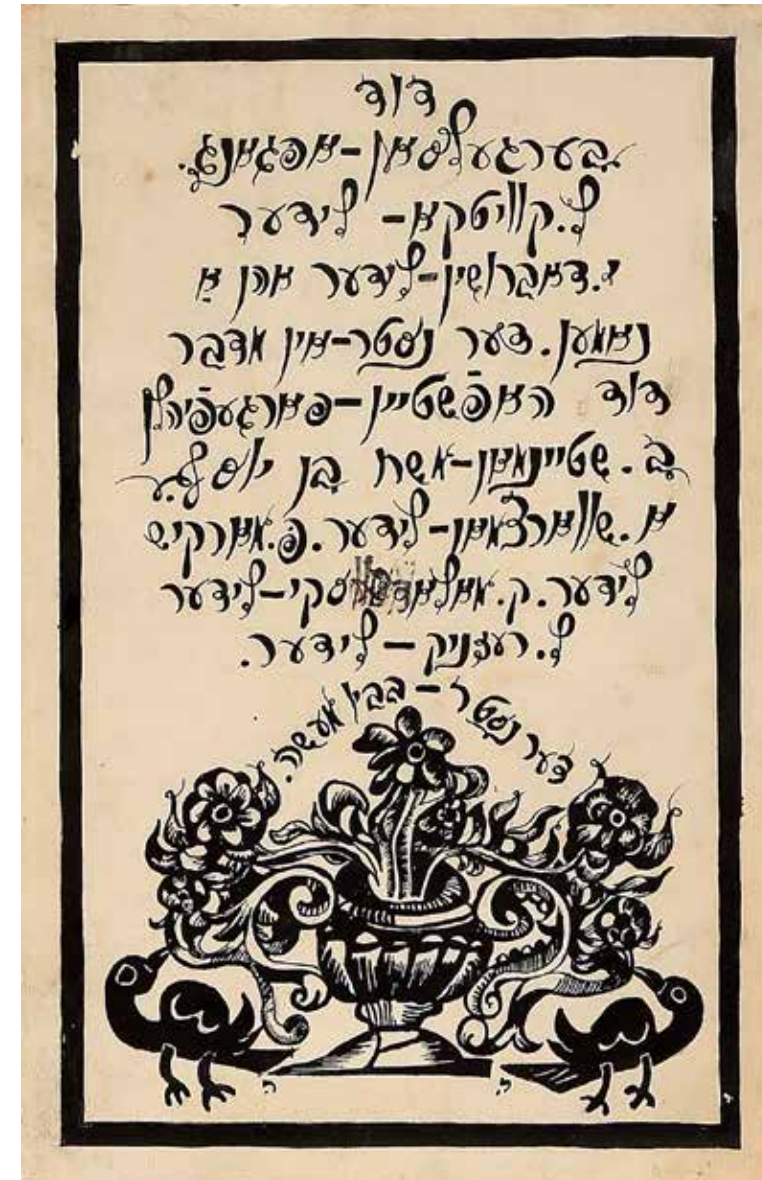 דוד
בערגעלסאָן-אָפּגאַנג.
ל. קוויטקאָ - לידער
י. דאָברושין-לידער אָהן אַ
נאָמען. דער נסתר-אין מדבר
דוד האָפֿשטיין-פאַרגעפֿיהלן
ב. שטיינמאַן-אשר בן יוסף
א. שוואַרצמאַן-לידער. פּ. מאַרקיש
לידער. ק. מאָלאָדאָווסקי-לידער
ל. רעזניק - לידער.
דער נסטר - בבין מעשה.